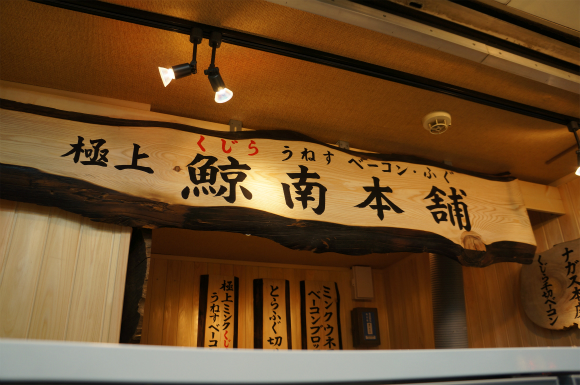 くじら うねす ベーコン・ふぐ
極上 鯨南本舗
極上ミンクくじら
うねすベーコ
とらふぐ切
ミンクウネ
ベーコンブロッ
ナガス本皮
くじら本切ベーコン